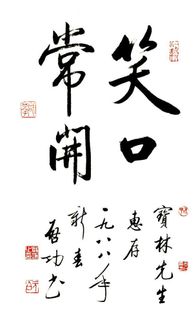 笑口
常開
寶林先生
惠存
一九八八年
新春
啓功书